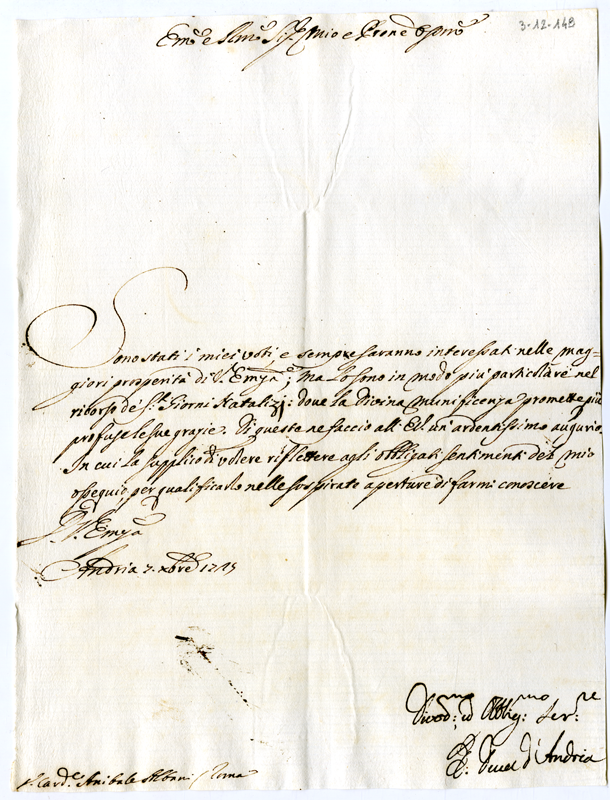 3-12-148
Em.o e R.mo Sig.r mio e Prone Oss.mo
Sono stati i miei voti, e sempre saranno interessati nelle mag-
giori prosperità di V.ra Em.za; ma lo sono in modo più particolare nel
ritorno de' S.ti Giorni Natalizj: dove la Divina munificenza promette più
profuse le sue grazie. Di queste ne faccio all' E.V. un' ardentissimo augurio,
in cui la supplico à volere riflettere agli obbligati sentimenti del mio
ossequio, per qualificarlo nelle sospirate aperture di farmi conoscere
D. V. Em.za
Andria 7. xbre 1715
Divot.mo ed Obblig.mo Ser.re
Il Duca d'Andria
S.r Card.le Anibale Albani Roma